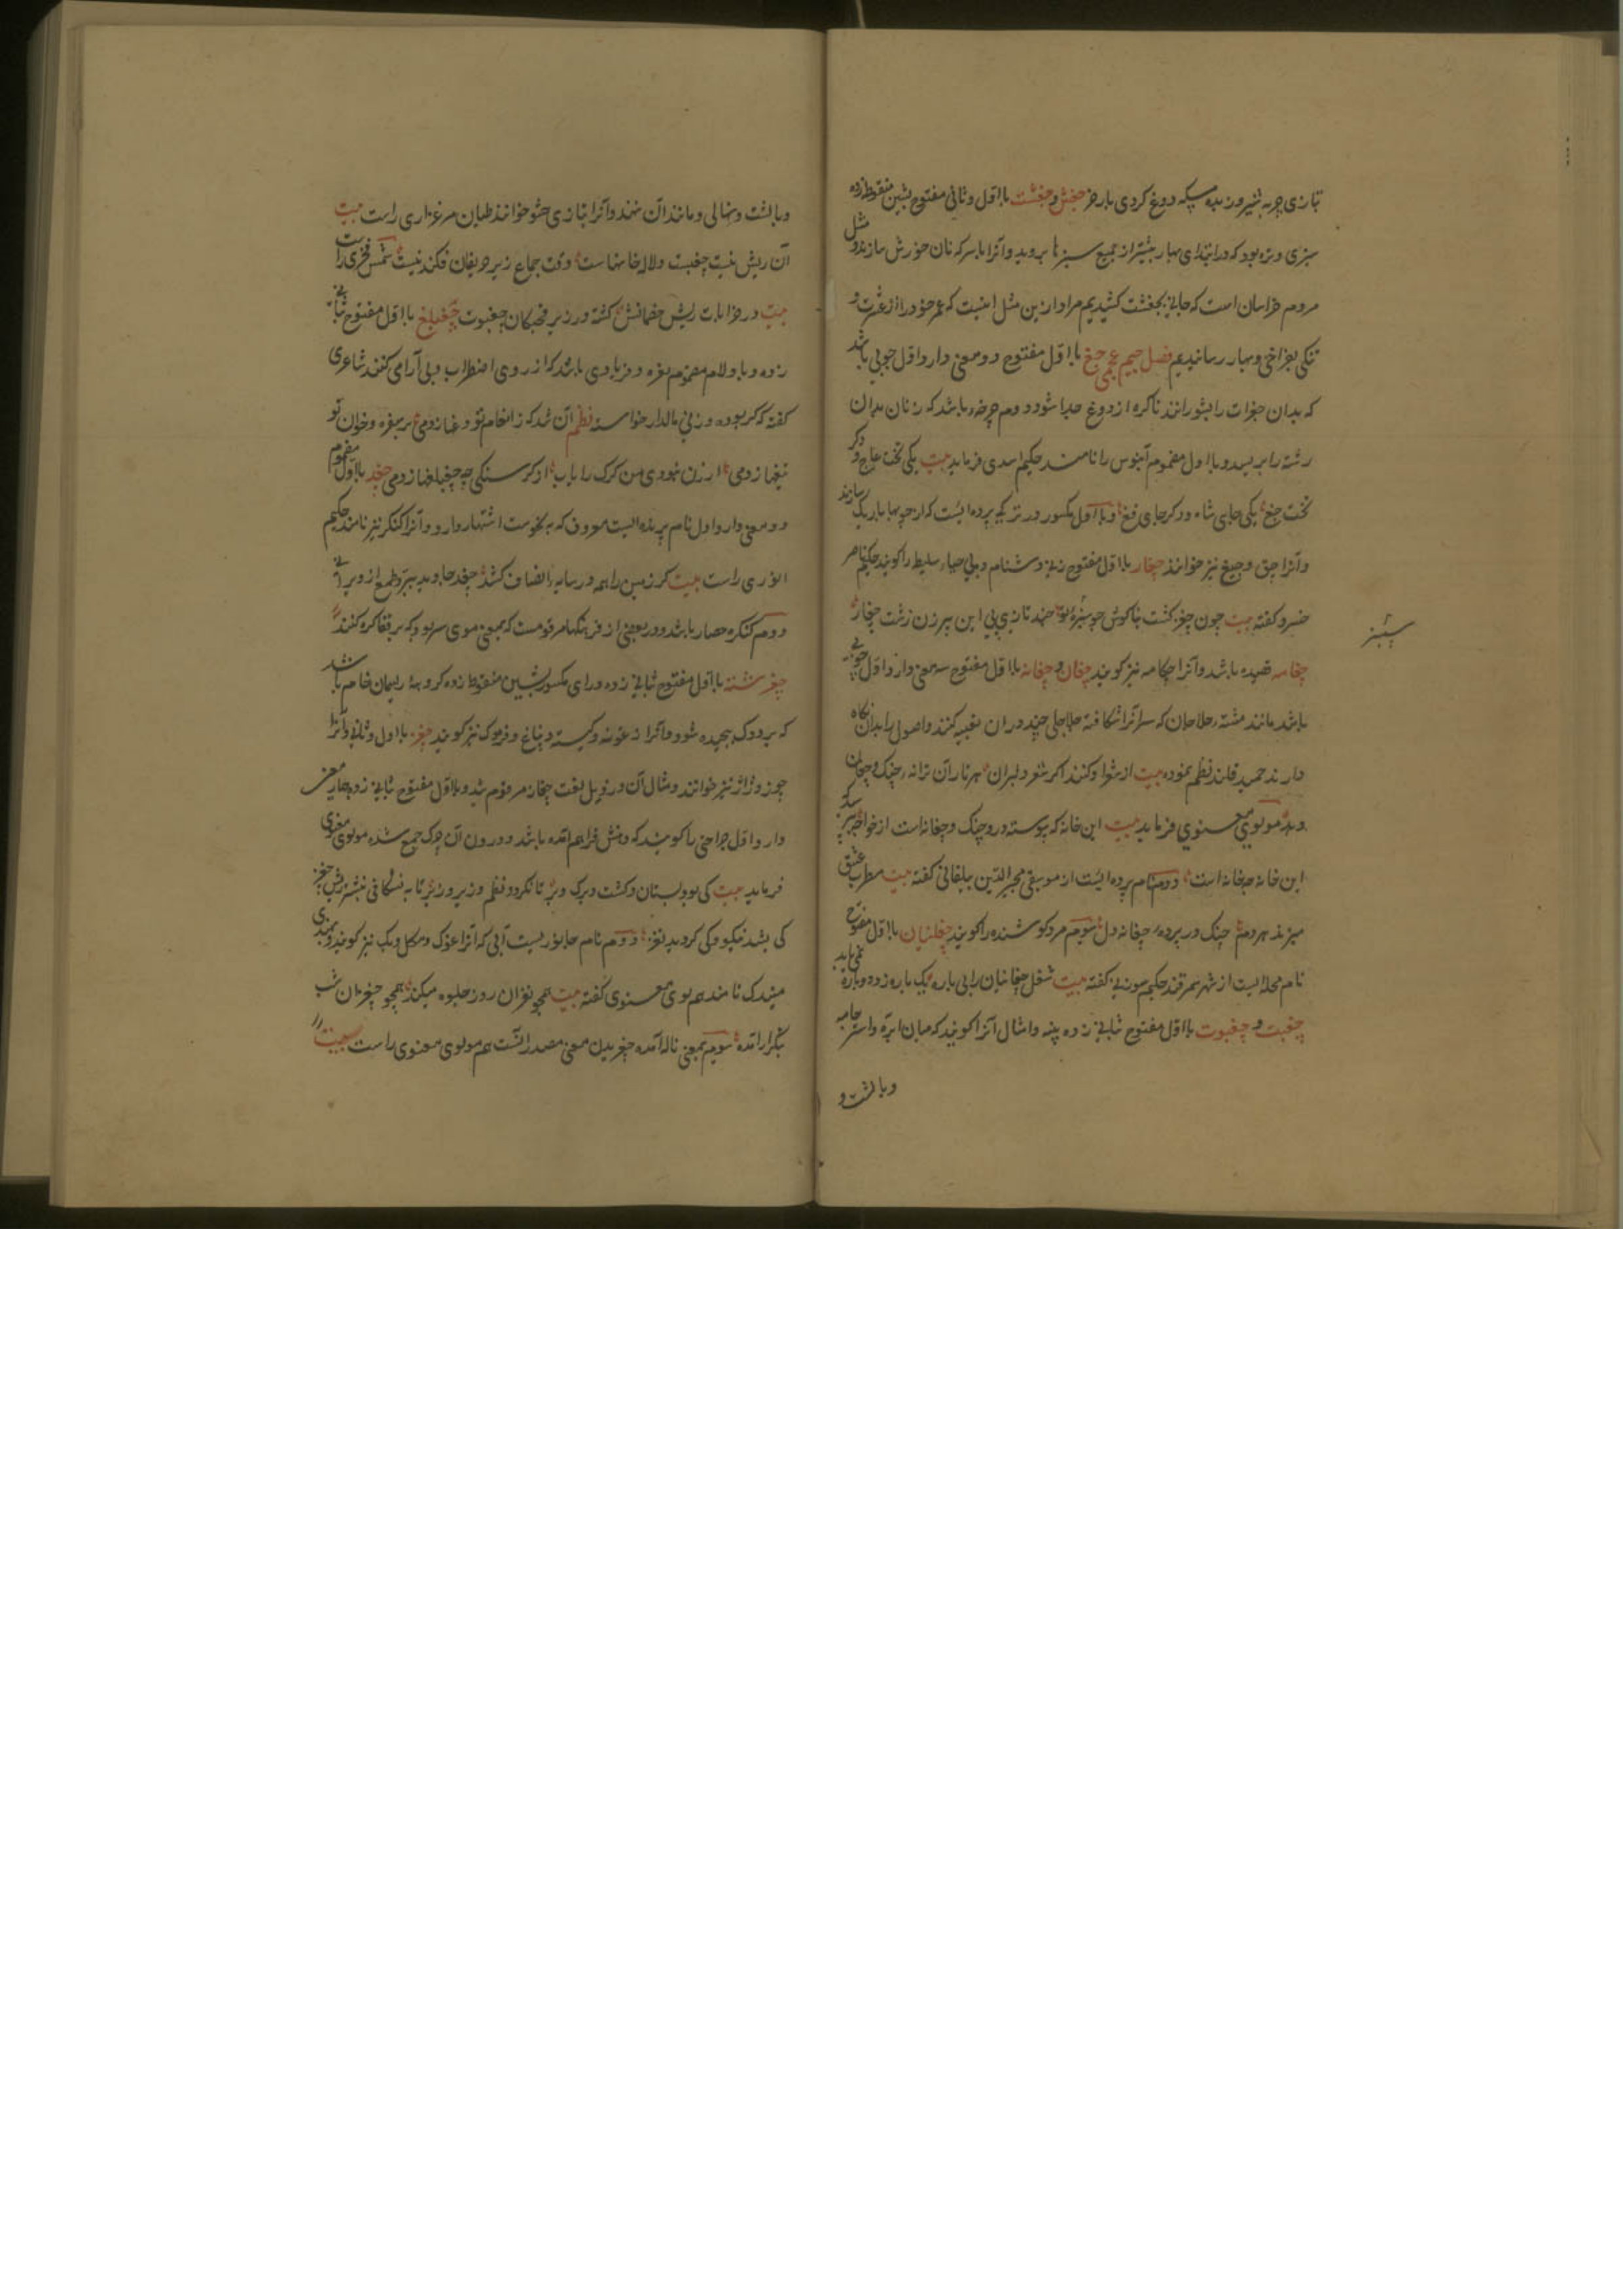 تبازی چربه شیر و زبده مسکه دوغ کردی بارخ جغش و جغشت بااول و ثانی مفتوح بشین منقوط زده
سبزی و تره بود که در ابتدای بهار بیشتر از جمیع سبزها بروید و آنرا با سرکه نان خورش سازند و مثل
مردم خراسان است که جانی بجغشت کشیدیم مراد ازین مثل اینست که عمر خود را از عسرت و
تنکی بفراخی و بهار رساندیم فصل جیم عجمی چغ بااول مفتوح دو معنی دارد اول چوبی باشد
که بدان جغرات را بشورانند تا کره از دوغ جدا شود دوم چرخه باشد که زنان بدان
رشته را بریسند و بااول مضموم آبنوس را نامند حکیم اسدی فرماید بیت یکی تخت عاج و دکر
تخت چغ یکی جای شاه و دکر جای فغ و بااول مکسور در ترکی پرده ایست که از چوبها باریک سازند
و آنرا چق و چیغ نیز خوانند چغار بااول مفتوح زنی دشنام ده بی حیا سلیط را کویند حکیم ناصر
خسرو کفته بیت چون چغز کشت بناکوش چو سنبر تو چند تازی پی این پیرزن زشت چغار
سپنبر
چغامه قصیده باشد و آنرا چکامه نیز کویند چغان و چغانه بااول مفتوح سه معنی دارد اول چوبی
باشد مانند مشته حلاجان که سر آنرا شکافته جلاجلی چند دران تعبیه کنند و اصول را بدان نکاه
دارند حمید قلندر نظم نموده بیت از شوا و کنند اکر شعر دلبران بهر تار آن ترانه چنک و چغان
دهد مولوی معنوی فرماید بیت این خانه که پیوسته درو چنک و چغانه است از خواجه بپرسید که
این خانه چه خانه است دوم نام پرده ایست از موسیقی مجیر الدین بیلقانی کفته بیت مطرب عشق
میزند هر دم چنک در پرده چغانه دل سوم مرد کوشنده را کویند چغانیان بااول مفتوح
نام محله ایست از شهر سمرقند حکیم سوزنی کفته بیت شغل چغانیان را بی باره یک باره زد دوباره نمی باید
چغبت و چغبوت بااول مفتوح بثانی زده پنبه و امثال آنرا کویند که میان ابره و آستر جامه
و بالشت و
و بالشت و نهالی و مانند آن نهند و آنرا بتازی حشو خوانند طیان مرغزاری راست بیت
آن ریش نیست چغبت دلاله خانهاست وقت جماع زیر حریفان فکندنیست شمس فخری راست
بیت در خرابات ریش خصمانش کشته در زیر قحبکان چغبوت چغبلغ بااول مفتوح بثانی
زده و با و لام مضموم نعره و فریادی باشد که از روی اضطراب و بی آرامی کنند شاعری
کفته که کر بوده و زنی مالدار خواسته نظم آن شد که ز انعام تو و غارزدمی بر سفره و خوان تو
تیغها زدمی ار زن نبودی من کرک را باب از کرسنکی چه چغبلغها زدمی چغد بااول مضموم
دو معنی دارد اول نام پرنده ایست معروف که به نحوست اشتهار دارد و آنرا کنکر نیز نامند حکیم
انوری راست بیت کر زمین را همه در سایه انصاف کشد چغد جاوید ببرد طمع از ویرانی
دوم کنکره حصار باشد و در بعضی از فرهنکها مرقومست که بمعنی موی سر بود که بر قفا کره کنند
چغرشته بااول مفتوح بثانی زده و رای مکسور بشین منقوط زده کروهه ریسمان خام باشد
که بر دوک پیچیده شود و آنرا دغونه و کیسته و نباغ و فرموک نیز کویند چغز بااول و ثانی و آنرا
چوز و ژاژ نیز خوانند و مثال آن در ذیل لغت چغاز مرقوم شد و بااول مفتوح بثانی زده چهار معنی
دارد اول جراحتی را کویند که دهنش فراهم آمده باشد و درون آن چرک جمع شده مولوی معنوی
فرماید بیت کی بود بستان و کشت و برک و بر تا نکردد نظم وزیر و زبر تا به نشکافی به نشتر ریش چغز
کی شد نیکو و کی کردید نغز دوم نام جانوریست آبی که آنرا غوک و مکل و بک نیز کویند و بهندی
میندک نامند هم مولوی معنوی کفته بیت همچو نغزان روز جلوه میکند همچو چغزان شب
بتکرار آمده سوم بمعنی ناله آمده چغزیدن معنی مصدر آنست هم مولوی معنوی راست بیت